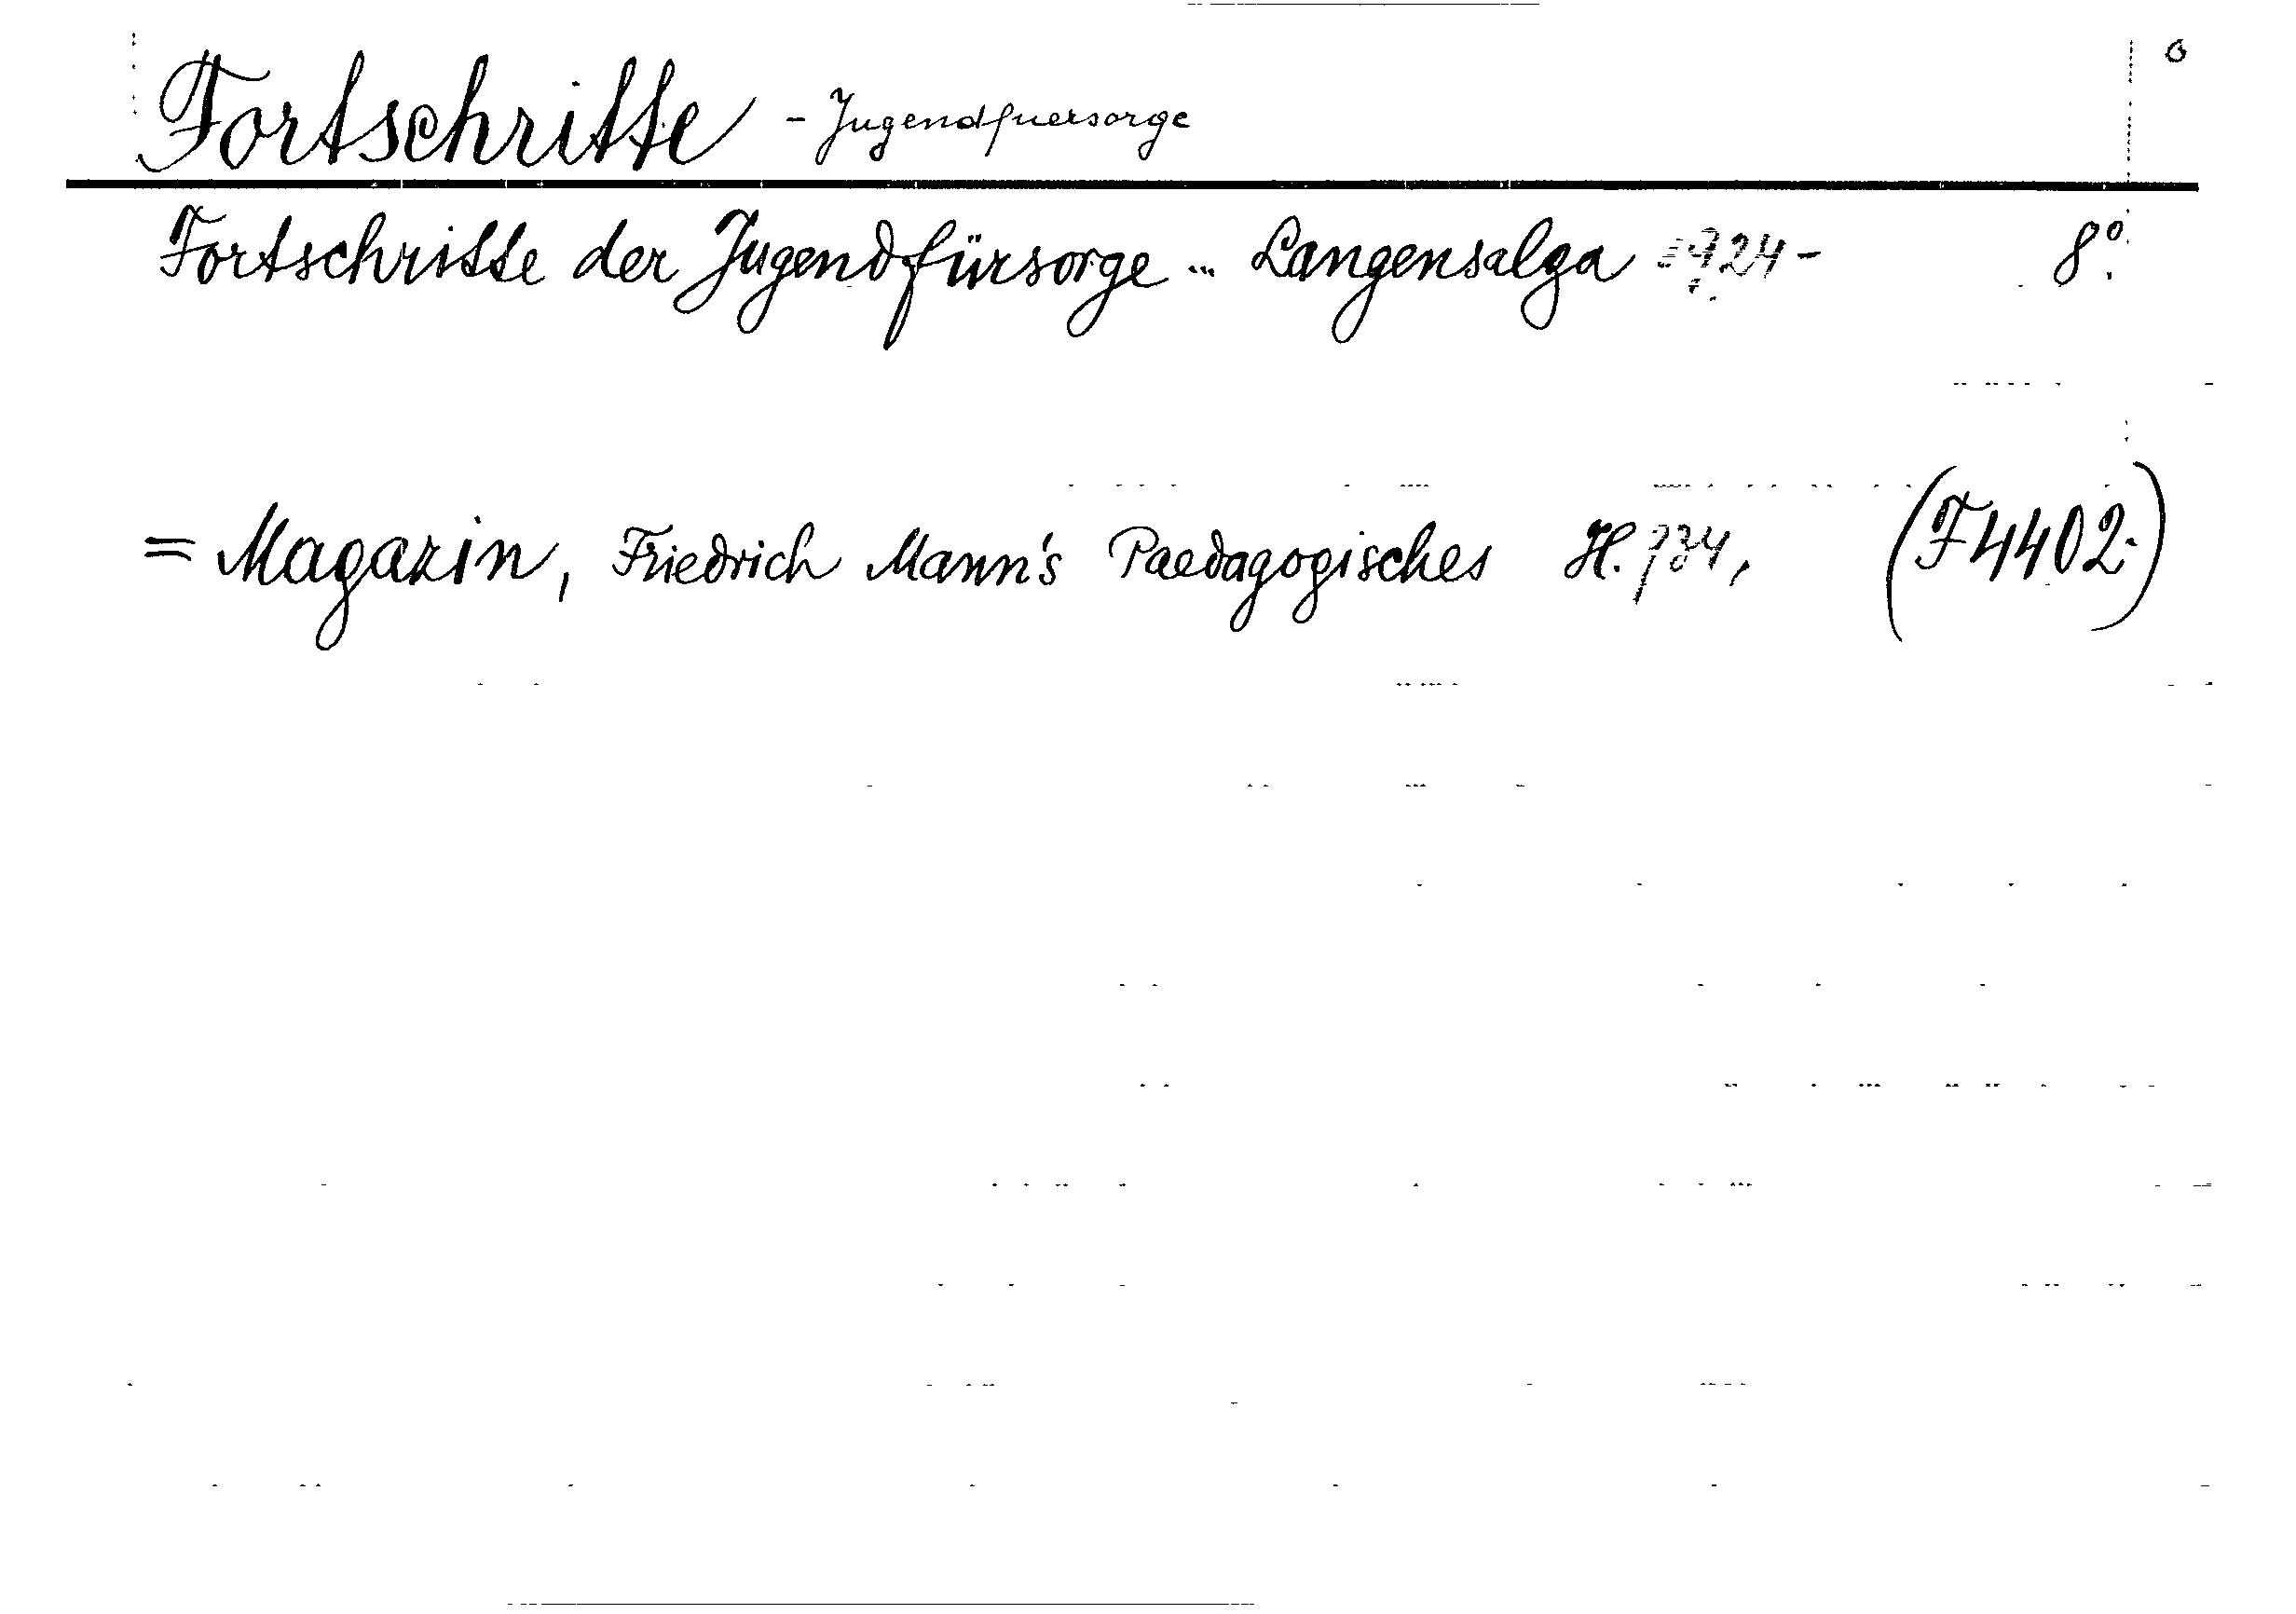 Fortschritte - Jugendfuersorge
Fortschritte der Jugendfürsorge ... Langensalza 1924- 8°.
= Magazin, Friedrich Mann's Paedagogisches H. (F4402.)